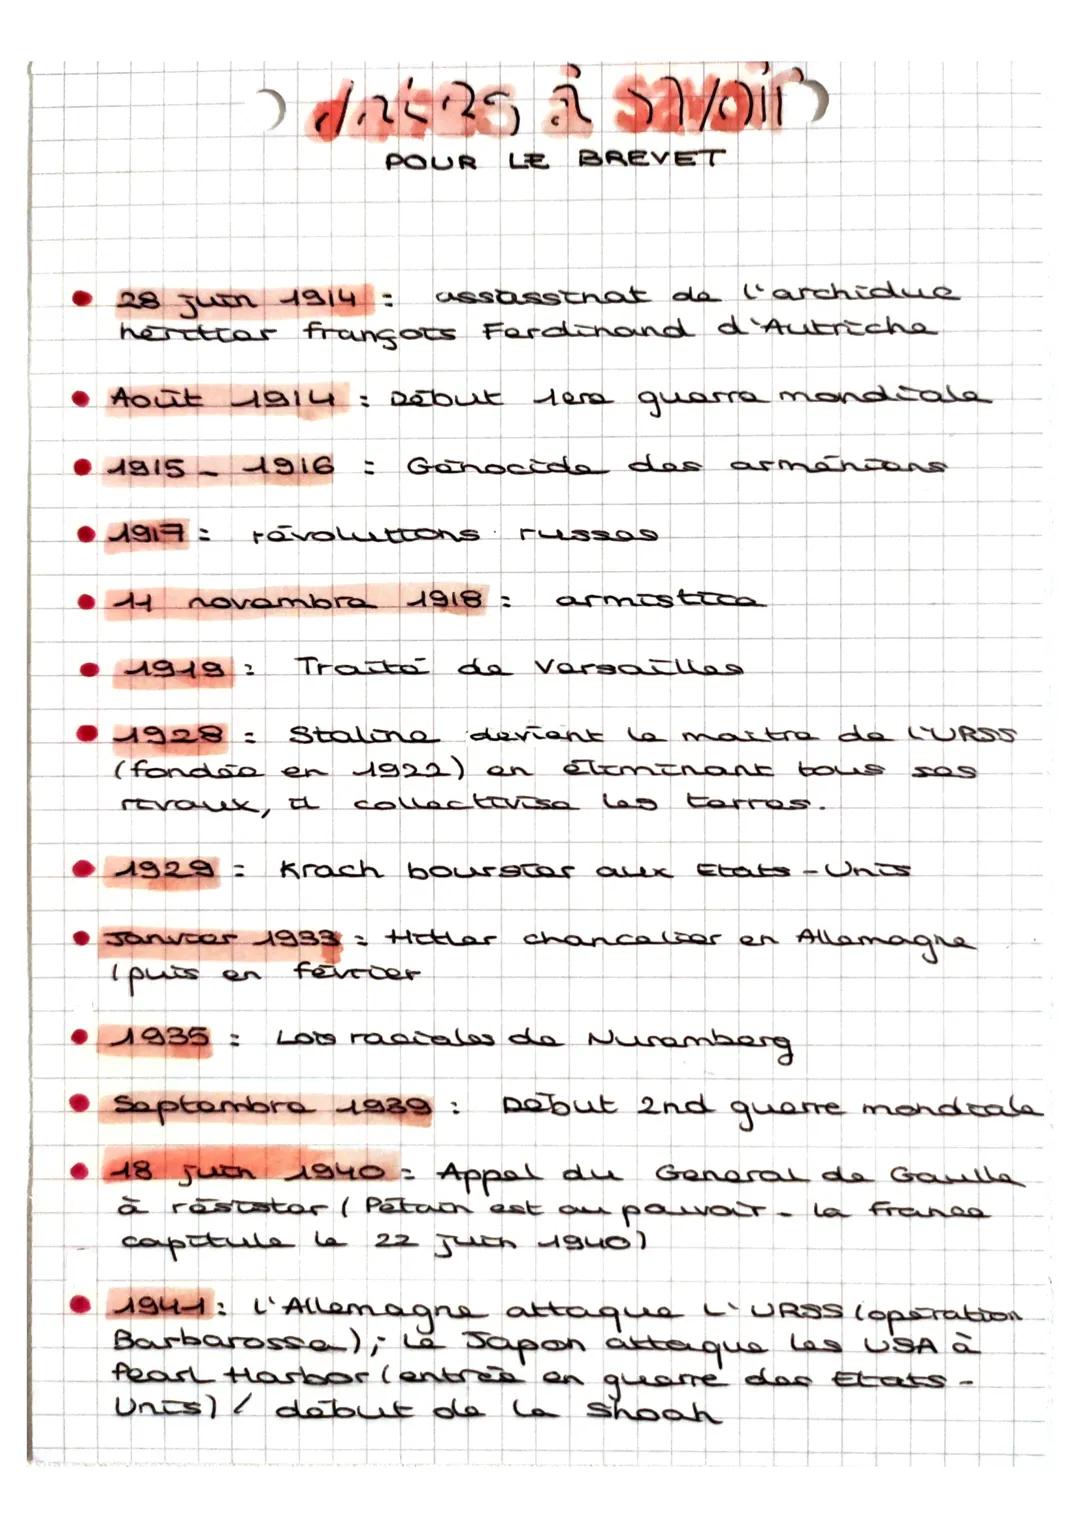 dates à savoir
POUR LE BREVET
28 juin 1914 : assassinat de l'archiduc
héritier françois Ferdinand d'Autriche
Août 1914 : Début 1ere guerre mondiale
1915 - 1916 : Génocide des arméniens
1917 : révolutions russes
11 novembre 1918 : armistice
1919 : Traité de Versailles
1928 : Staline devient le maitre de l'URSS
(fondée en 1922) en éliminant tous ses
rivaux, il collectivise les terres.
1929 : Krach boursier aux Etats-Unis
Janvier 1933 : Hitler chancelier en Allemagne
(puis en février
1935 : Lois raciales de Nuremberg
Septembre 1939 : Début 2nd guerre mondiale
18 juin 1940 : Appel du General de Gaulle
à résister (Pétain est au pouvoir - la france
capitule le 22 juin 1940)
1941 : l'Allemagne attaque L'URSS (opération
Barbarossa) ; Le Japon attaque les USA à
Pearl Harbor (entrée en guerre des Etats-
Unis) / début de la Shoah